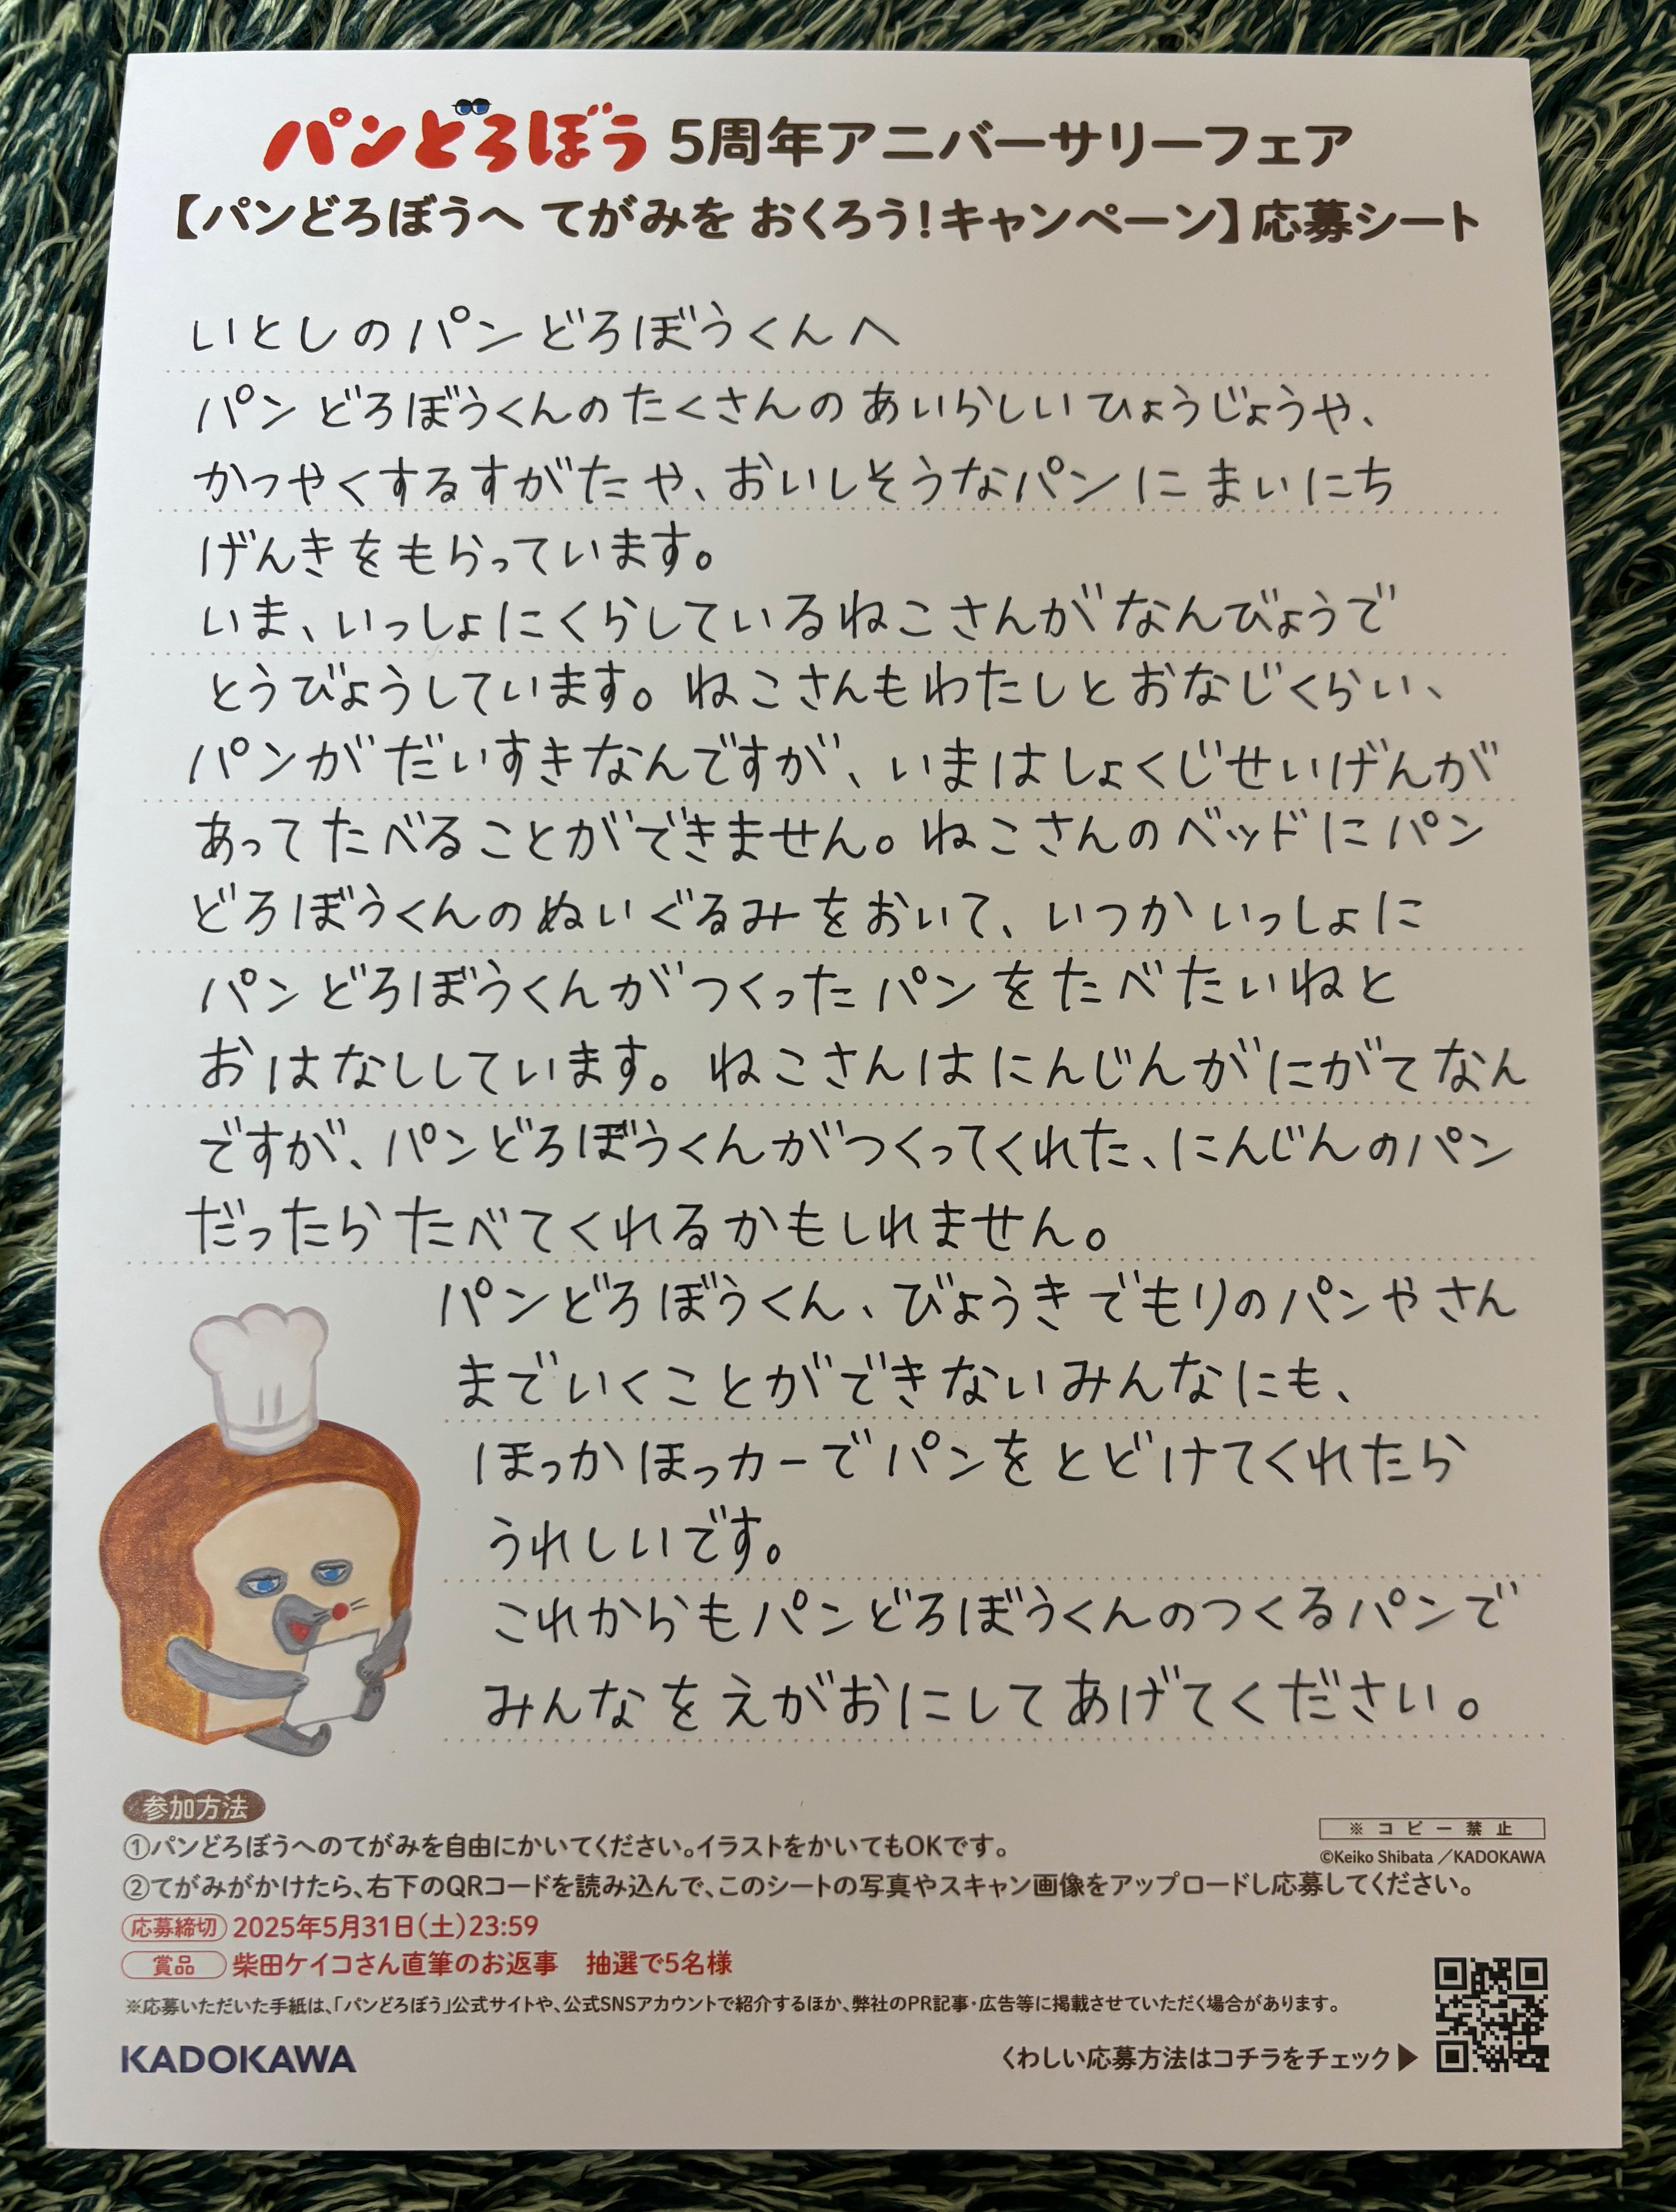 パンどろぼう 5周年アニバーサリーフェア
【パンどろぼうへ てがみを おくろう!キャンペーン】応募シート
いとしのパンどろぼうくんへ
パンどろぼうくんのたくさんのあいらしいひょうじょうや、
かつやくするすがたや、おいしそうなパンにまいにち
げんきをもらっています。
いま、いっしょにくらしているねこさんがなんびょうで
とうびょうしています。ねこさんもわたしとおなじくらい、
パンがだいすきなんですが、いまはしょくじせいげんが
あってたべることができません。ねこさんのベッドにパン
どろぼうくんのぬいぐるみをおいて、いつかいっしょに
パンどろぼうくんがつくったパンをたべたいねと
おはなししています。ねこさんはにんじんがにがてなん
ですが、パンどろぼうくんがつくってくれた、にんじんのパン
だったらたべてくれるかもしれません。
パンどろぼうくん、びょうきでもりのパンやさん
までいくことができないみんなにも、
ほっかほっカーでパンをとどけてくれたら
うれしいです。
これからもパンどろぼうくんのつくるパンで
みんなをえがおにしてあげてください。
参加方法
①パンどろぼうへのてがみを自由にかいてください。イラストをかいてもOKです。
※コピー禁止
©Keiko Shibata／KADOKAWA
②てがみがかけたら、右下のQRコードを読み込んで、このシートの写真やスキャン画像をアップロードし応募してください。
応募締切 2025年5月31日(土)23:59
賞品 柴田ケイコさん直筆のお返事 抽選で5名様
※応募いただいた手紙は、「パンどろぼう」公式サイトや、公式SNSアカウントで紹介するほか、弊社のPR記事・広告等に掲載させていただく場合があります。
KADOKAWA
くわしい応募方法はコチラをチェック▶